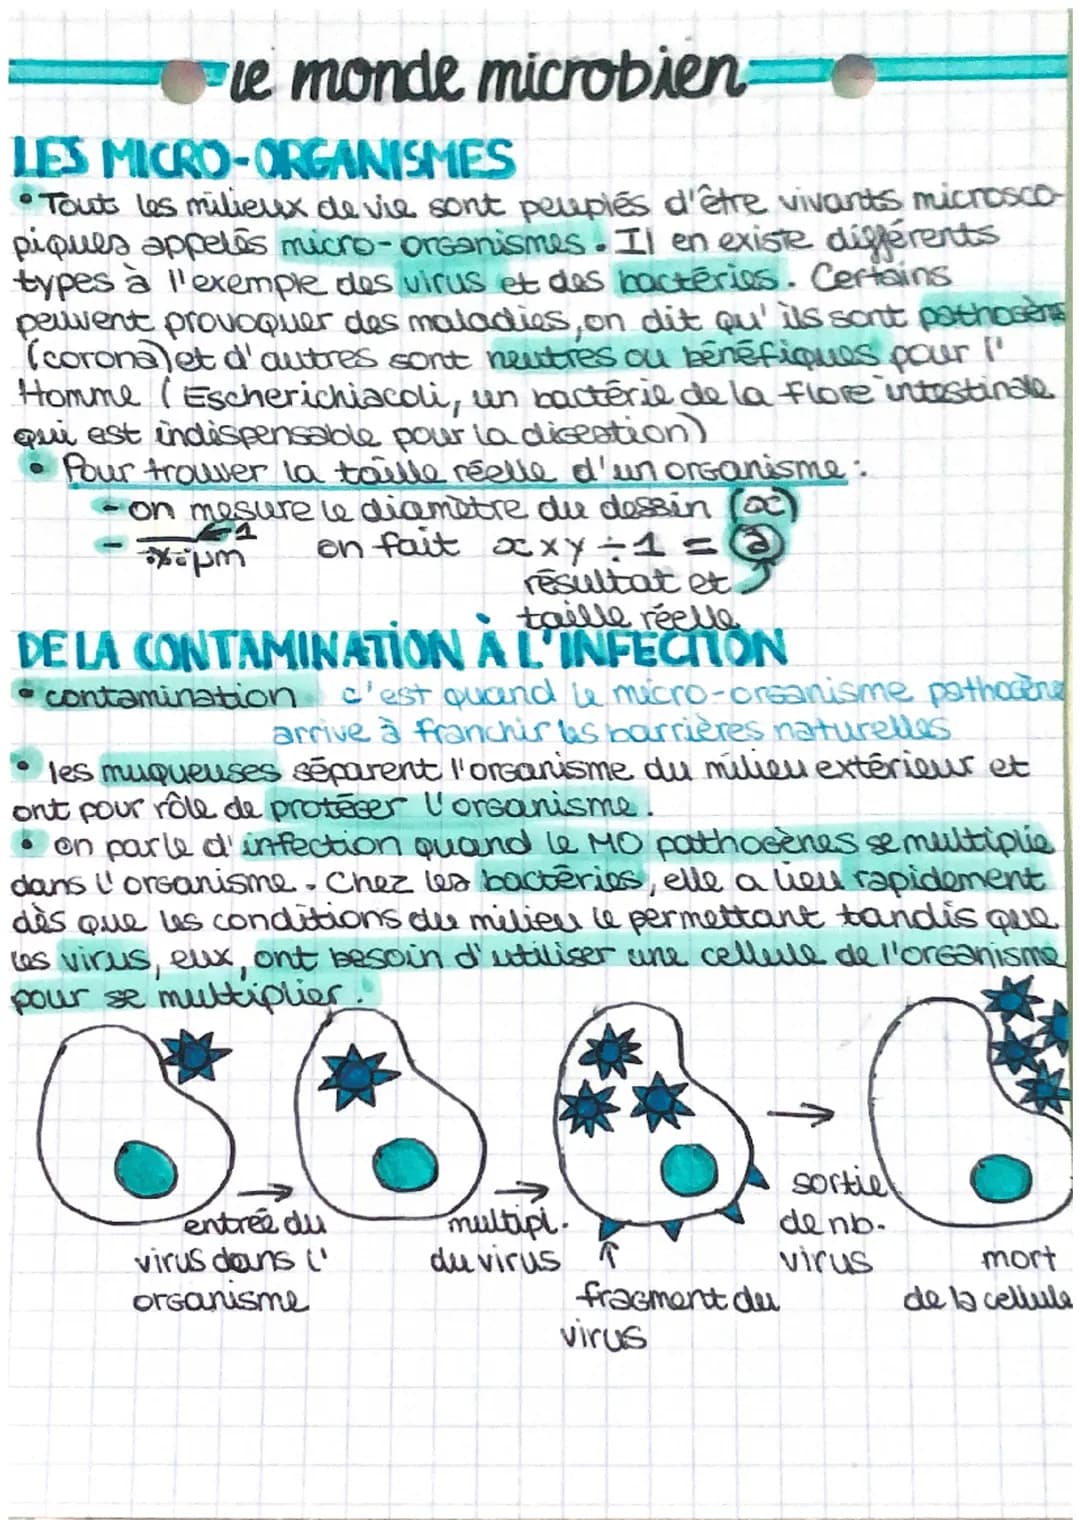 le monde microbien
LES MICRO-ORGANISMES
• Touts les milieux de vie sont peuplés d'être vivants microsco-
piques appelés micro-organismes. Il en existe différents
types à l'exemple des virus et des bactéries. Certains
peuvent provoquer des maladies, on dit qu'ils sont pathogèns
(corona) et d'autres sont neutres ou bénéfiques pour l'
Homme (Escherichiacoli, un bactérie de la flore intestinale
qui est indispensable pour la digestion)
• Pour trouver la taille réelle d'un organisme :
- on mesure le diamètre du dessin (x)
- 1 on fait x x y ÷ 1 = a
µm
résultat et
taille réelle
DE LA CONTAMINATION À L'INFECTION
• contamination c'est quand le micro-organisme pathogène
arrive à franchir les barrières naturelles
• les muqueuses séparent l'organisme du milieu extérieur et
ont pour rôle de protéger l'organisme.
• on parle d'infection quand le MO pathogènes se multiplie
dans l'organisme. Chez les bactéries, elle a lieu rapidement
dès que les conditions du milieu le permettant tandis que
les virus, eux, ont besoin d'utiliser une cellule de l'organisme
pour se multiplier.
entrée du
virus dans l'
organisme
multipl.
du virus
fragment du
virus
sortie
de nb.
virus
mort
de la cellule